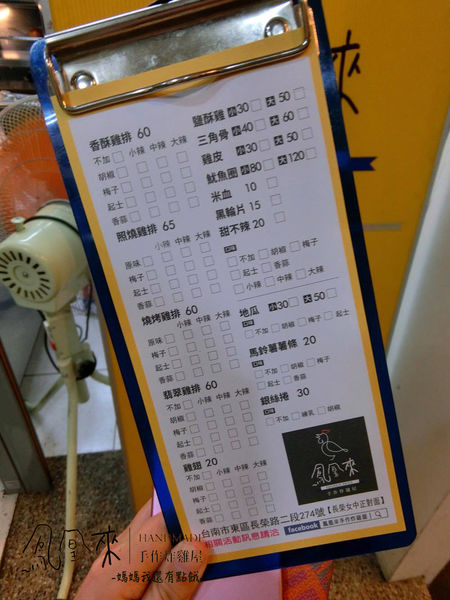 香酥雞排 60
不加 小辣 中辣 大辣
胡椒
梅子
起士
香蒜
照燒雞排 65
小辣 中辣 大辣
原味
梅子
起士
香蒜
燒烤雞排 60
小辣 中辣 大辣
原味
梅子
起士
香蒜
翡翠雞排 60
不加 小辣 中辣 大辣
梅子
起士
香蒜
雞翅 20
不加 小辣 中辣 大辣
胡椒
梅子
起士
香蒜
鹽酥雞 小30 大50
三角骨 小40 大60
雞皮 小30 大50
魷魚圈 小80 大120
米血 10
黑輪片 15
甜不辣 20
口味
不加 胡椒 梅子
起士 香蒜
小辣 中辣 大辣
地瓜 小30 大50
口味
不加 胡椒 梅子 起士
馬鈴薯薯條 20
口味
不加 胡椒 梅子
起士 香蒜
銀絲捲 30
口味
不加 煉乳 胡椒
鳳凰來
手作炸雞屋
台南市東區長榮路二段274號【長榮女中正對面】
相關活動訊息請洽 facebook 鳳凰來手作炸雞屋
來
鳳凰來 HANDMADE 手作炸雞屋
-媽媽我還有點餓